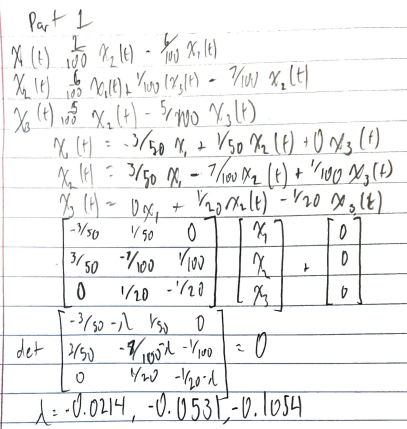 Part 1
x₁(t) 2/100 x₂(t) - 6/100 x₁(t)
x₂(t) 6/100 x₁(t) + 1/100 (x₃(t) - 7/100 x₂(t)
x₃(t) 5/100 x₂(t) - 5/100 x₃(t)
x₁(t) = -3/50 x₁ + 1/50 x₂(t) + 0 x₃(t)
x₂(t) = 3/50 x₁ - 7/100 x₂(t) + 1/100 x₃(t)
x₃(t) = 0x₁ + 1/20 x₂(t) - 1/20 x₃(t)
[-3/50 1/50 0] [x₁] [0]
[3/50 -7/100 1/100] [x₂] + [0]
[0 1/20 -1/20] [x₃] [0]
[-3/50-λ 1/50 0]
det [3/50 -7/100-λ -1/100] = 0
[0 1/20 -1/20-λ]
λ = -0.0214, -0.0531, -0.1054